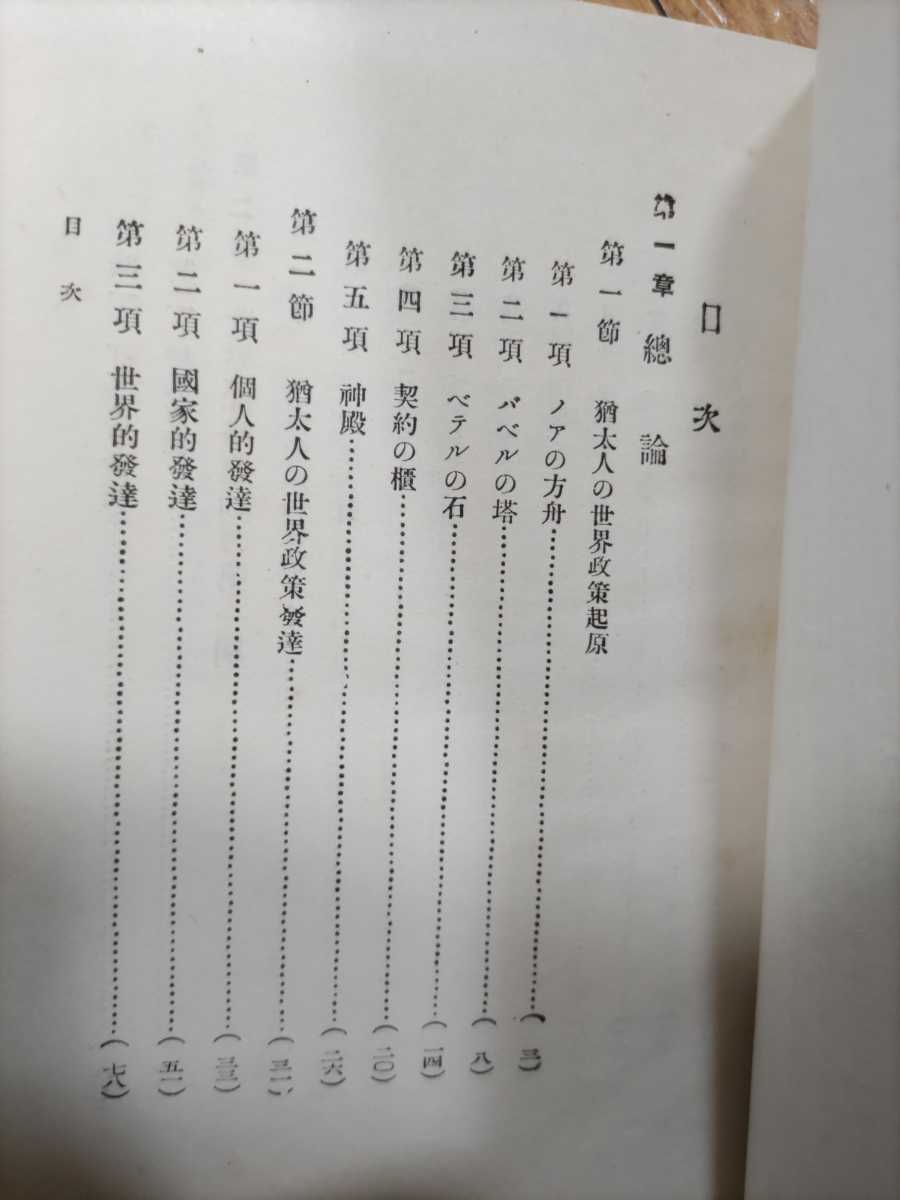 目次
第一章 總論
第一節 猶太人の世界政策起原
第一項 ノアの方舟……(三)
第二項 バベルの塔……(八)
第三項 ベテルの石……(一四)
第四項 契約の櫃……(二〇)
第五項 神殿……(二六)
第二節 猶太人の世界政策發達……(三一)
第一項 個人的發達……(三三)
第二項 國家的發達……(五一)
第三項 世界的發達……(七八)
目次